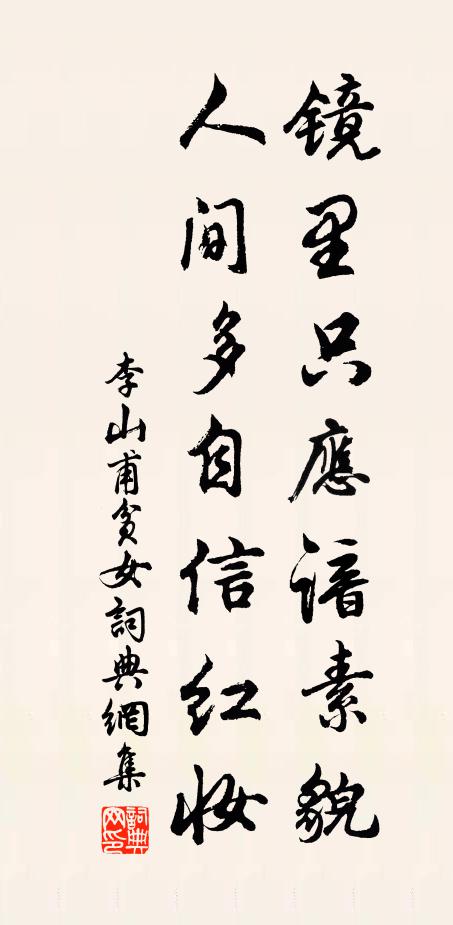 镜里只應谙素貌
人间多自信红妆
李山甫贫女詞典網集
詞典网印